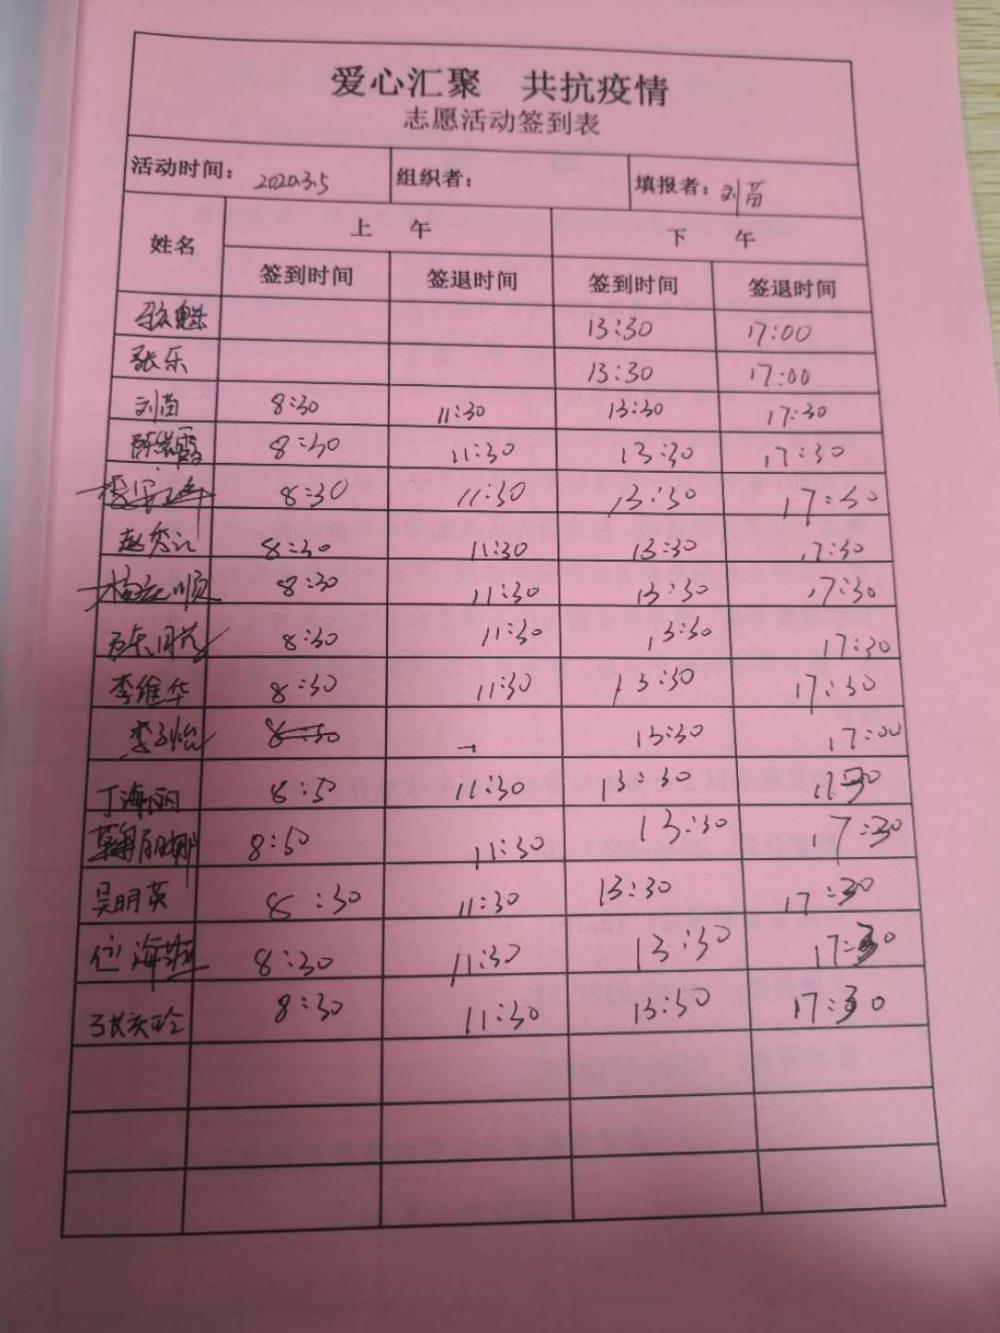 爱心汇聚 共抗疫情
志愿活动签到表
活动时间: 2020.3.5 组织者: 填报者: 刘苗
姓名 上 午 下 午
签到时间 签退时间 签到时间 签退时间
13:30 17:00
张乐 13:30 17:00
刘苗 8:30 11:30 13:30 17:30
陈 霞 8:30 11:30 13:30 17:30
8:30 11:30 13:30 17:30
赵秀江 8:30 11:30 13:30 17:30
顺 8:30 11:30 13:30 17:30
8:30 11:30 13:30 17:30
李维华 8:30 11:30 13:30 17:30
李子怡 8:30 13:30 17:00
丁海丽 8:30 11:30 13:30 17:30
丽娜 8:30 11:30 13:30 17:30
吴明英 8:30 11:30 13:30 17:30
海 8:30 11:30 13:30 17:30
张 玲 8:30 11:30 13:30 17:30